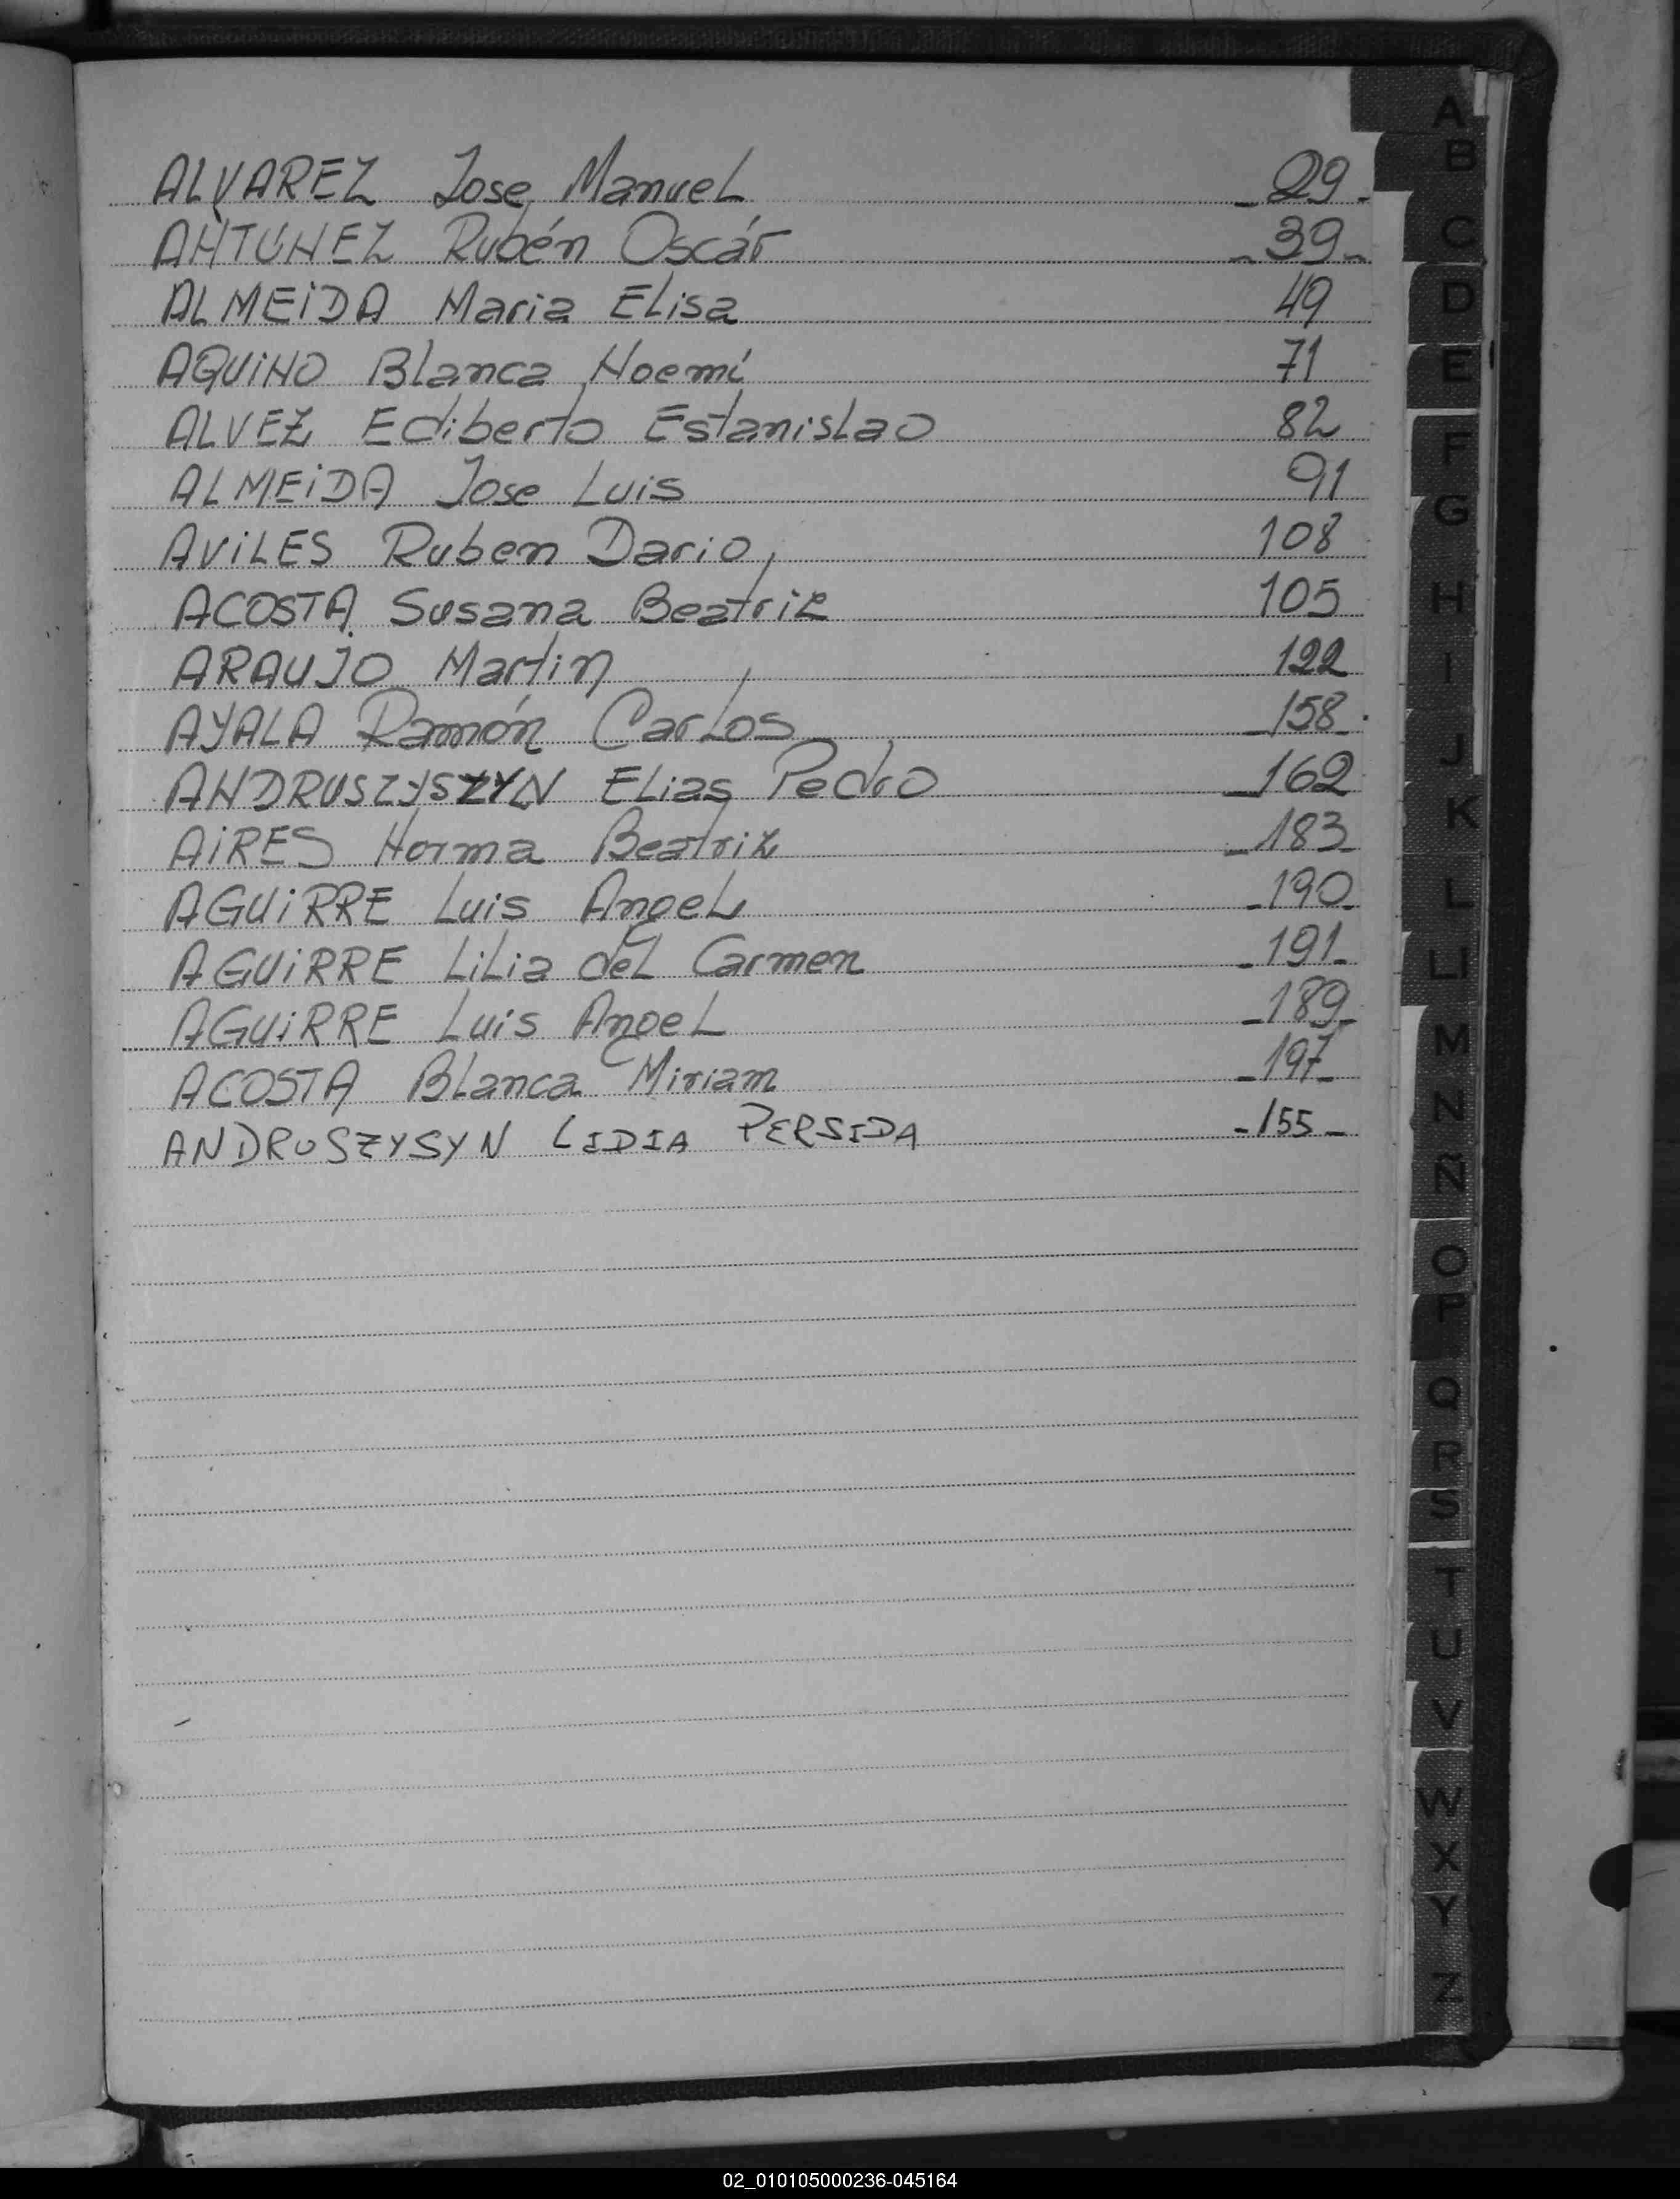 ALVAREZ Jose Manuel _ 29 -
ANTUNEZ Rubén Oscár - 39 -
ALMEiDA Maria Elisa 49
AQUiNO Blanca Noemí 71
ALVEZ Ediberto Estanislao 82
ALMEiDA Jose Luis 91
AViLES Ruben Dario 108
ACOSTA Susana Beatriz 105
ARAUJO Martin 122
AYALA Ramón Carlos _ 158 -
ANDRUSZYSZYN Elias Pedro _ 162
AiRES Norma Beatriz _ 183 -
AGUiRRE Luis Angel - 190 -
AGUiRRE Lilia del Carmen - 191 -
AGUiRRE Luis Angel - 189 -
ACOSTA Blanca Miriam - 197 -
ANDRUSZYSYN LIDIA PERSIDA - 155 -
A
B
C
D
E
F
G
H
I
J
K
L
Ll
M
N
Ñ
O
P
Q
R
S
T
U
V
W
X
Y
Z
02_010105000236-045164